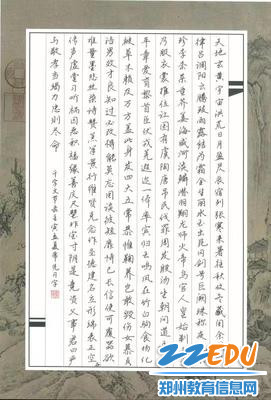 天地玄黄宇宙洪荒日月盈昃辰宿列张寒来暑往秋收冬藏闰余成岁
律吕调阳云腾致雨露结为霜金生丽水玉出昆冈剑号巨阙珠称夜光果
珍李柰菜重芥姜海咸河淡鳞潜羽翔龙师火帝鸟官人皇始制文字
乃服衣裳推位让国有虞陶唐吊民伐罪周发殷汤坐朝问道垂拱
平章爱育黎首臣伏戎羌遐迩一体率宾归王鸣凤在竹白驹食场化
被草木赖及万方盖此身发四大五常恭惟鞠养岂敢毁伤女慕贞
洁男效才良知过必改得能莫忘罔谈彼短靡恃己长信使可覆器欲
难量墨悲丝染诗赞羔羊景行维贤克念作圣德建名立形端表正空
谷传声虚堂习听祸因恶积福缘善庆尺璧非宝寸阴是竞资父事君曰严
与敬孝当竭力忠则尽命
千字文节录壬寅孟夏
ZZEDU
郑州教育信息网